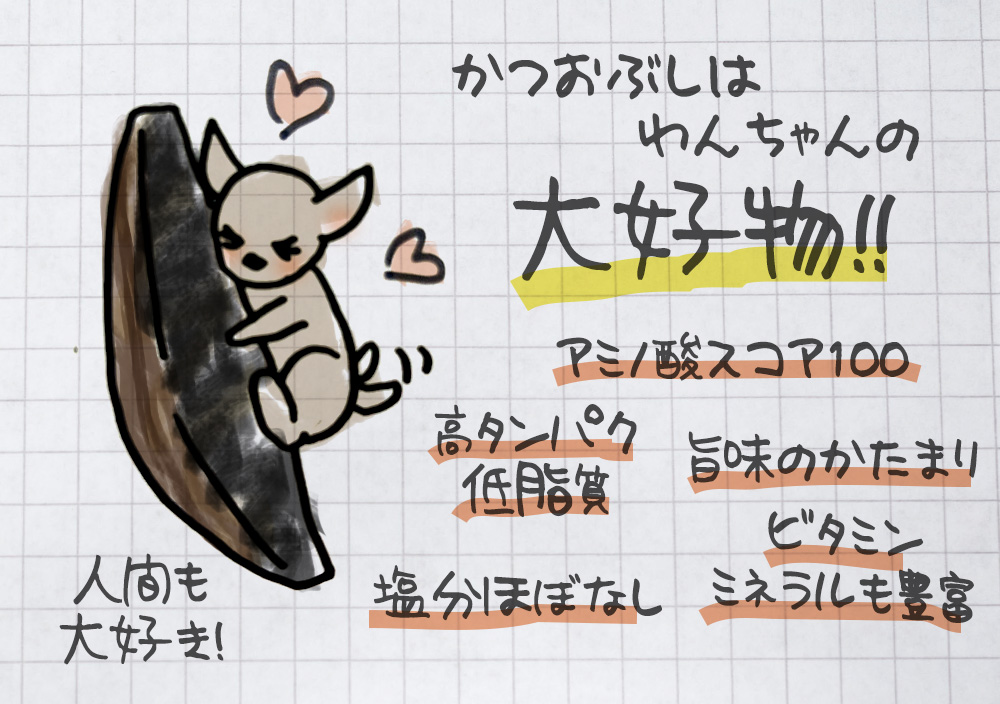 かつおぶしは
わんちゃんの
大好物!!
アミノ酸スコア100
高タンパク
低脂質
旨味のかたまり
ビタミン
ミネラルも豊富
塩分ほぼなし
人間も
大好き!